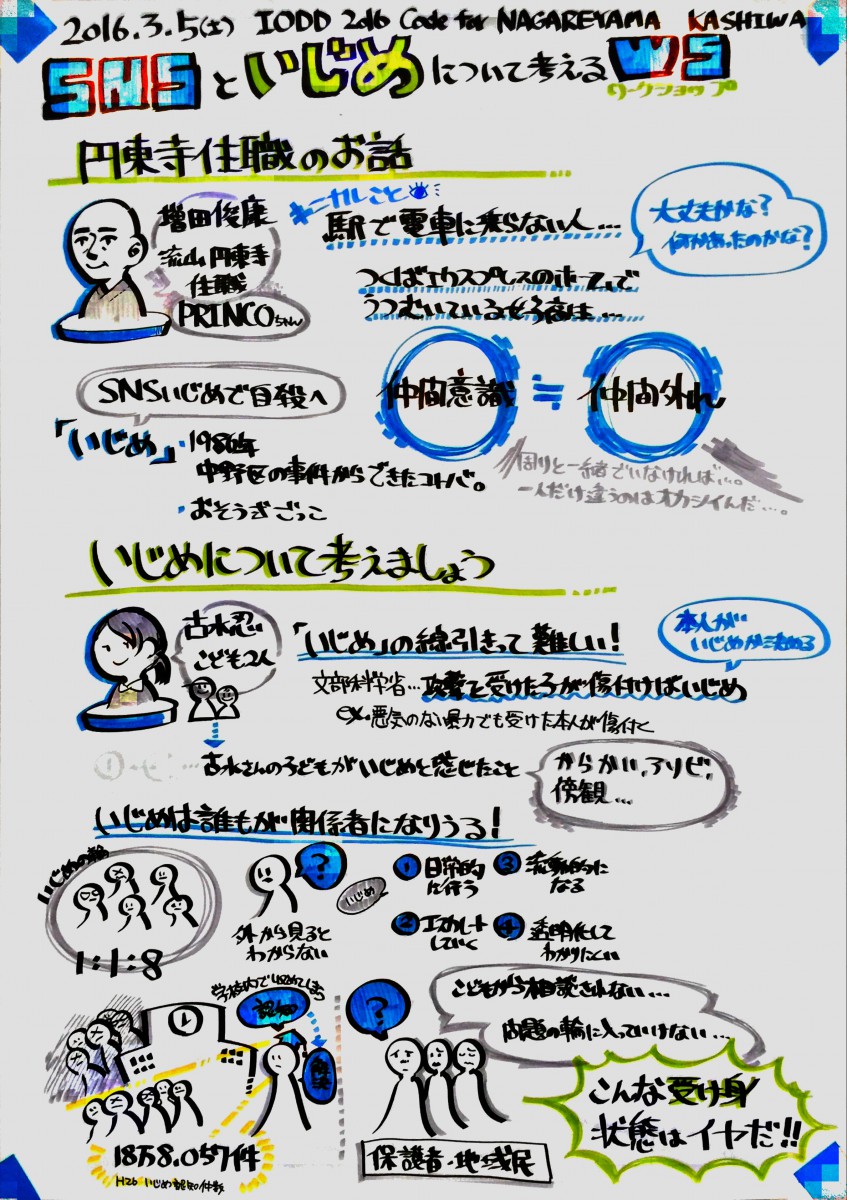 2016.3.5(土) IODD 2016 Code for NAGAREYAMA KASHIWA
SNSといじめについて考えるWS
ワークショップ
円東寺住職のお話
増田俊康
流山円東寺
住職
PRINCOちゃん
キニナルこと
駅で電車に乗らない人…
大丈夫かな?
何があったのかな?
つくばエクスプレスのホームで
うつむいている女子高生…
SNSいじめで自殺へ
仲間意識≒仲間外れ
「いじめ」・1986年
中野区の事件からできたコトバ。
・おそうぎごっこ
周りと一緒でいなければ…。
一人だけ違うのはオカシイんだ…。
いじめについて考えましょう
古水忍
こども2人
「いじめ」の線引きって難しい!
本人が
いじめか決める
文部科学省…攻撃を受けた子が傷付けばいじめ
ex.悪気のない暴力でも受けた本人が傷付く
古水さんの子どもがいじめと感じたこと
からかい,アソビ,
傍観…
いじめは誰もが関係者になりうる!
いじめの輪
1:1:8
?
外から見ると
わからない
いじめ
①日常的に行う
③流動的になる
②エスカレートしていく
④透明化してわかりにくい
学校内で収めてしまう
認知
解決
?
こどもから相談されない…
問題の輪に入っていけない…
18万8.057件
H26 いじめ認知件数
保護者・地域民
こんな受け身
状態はイヤだ!!